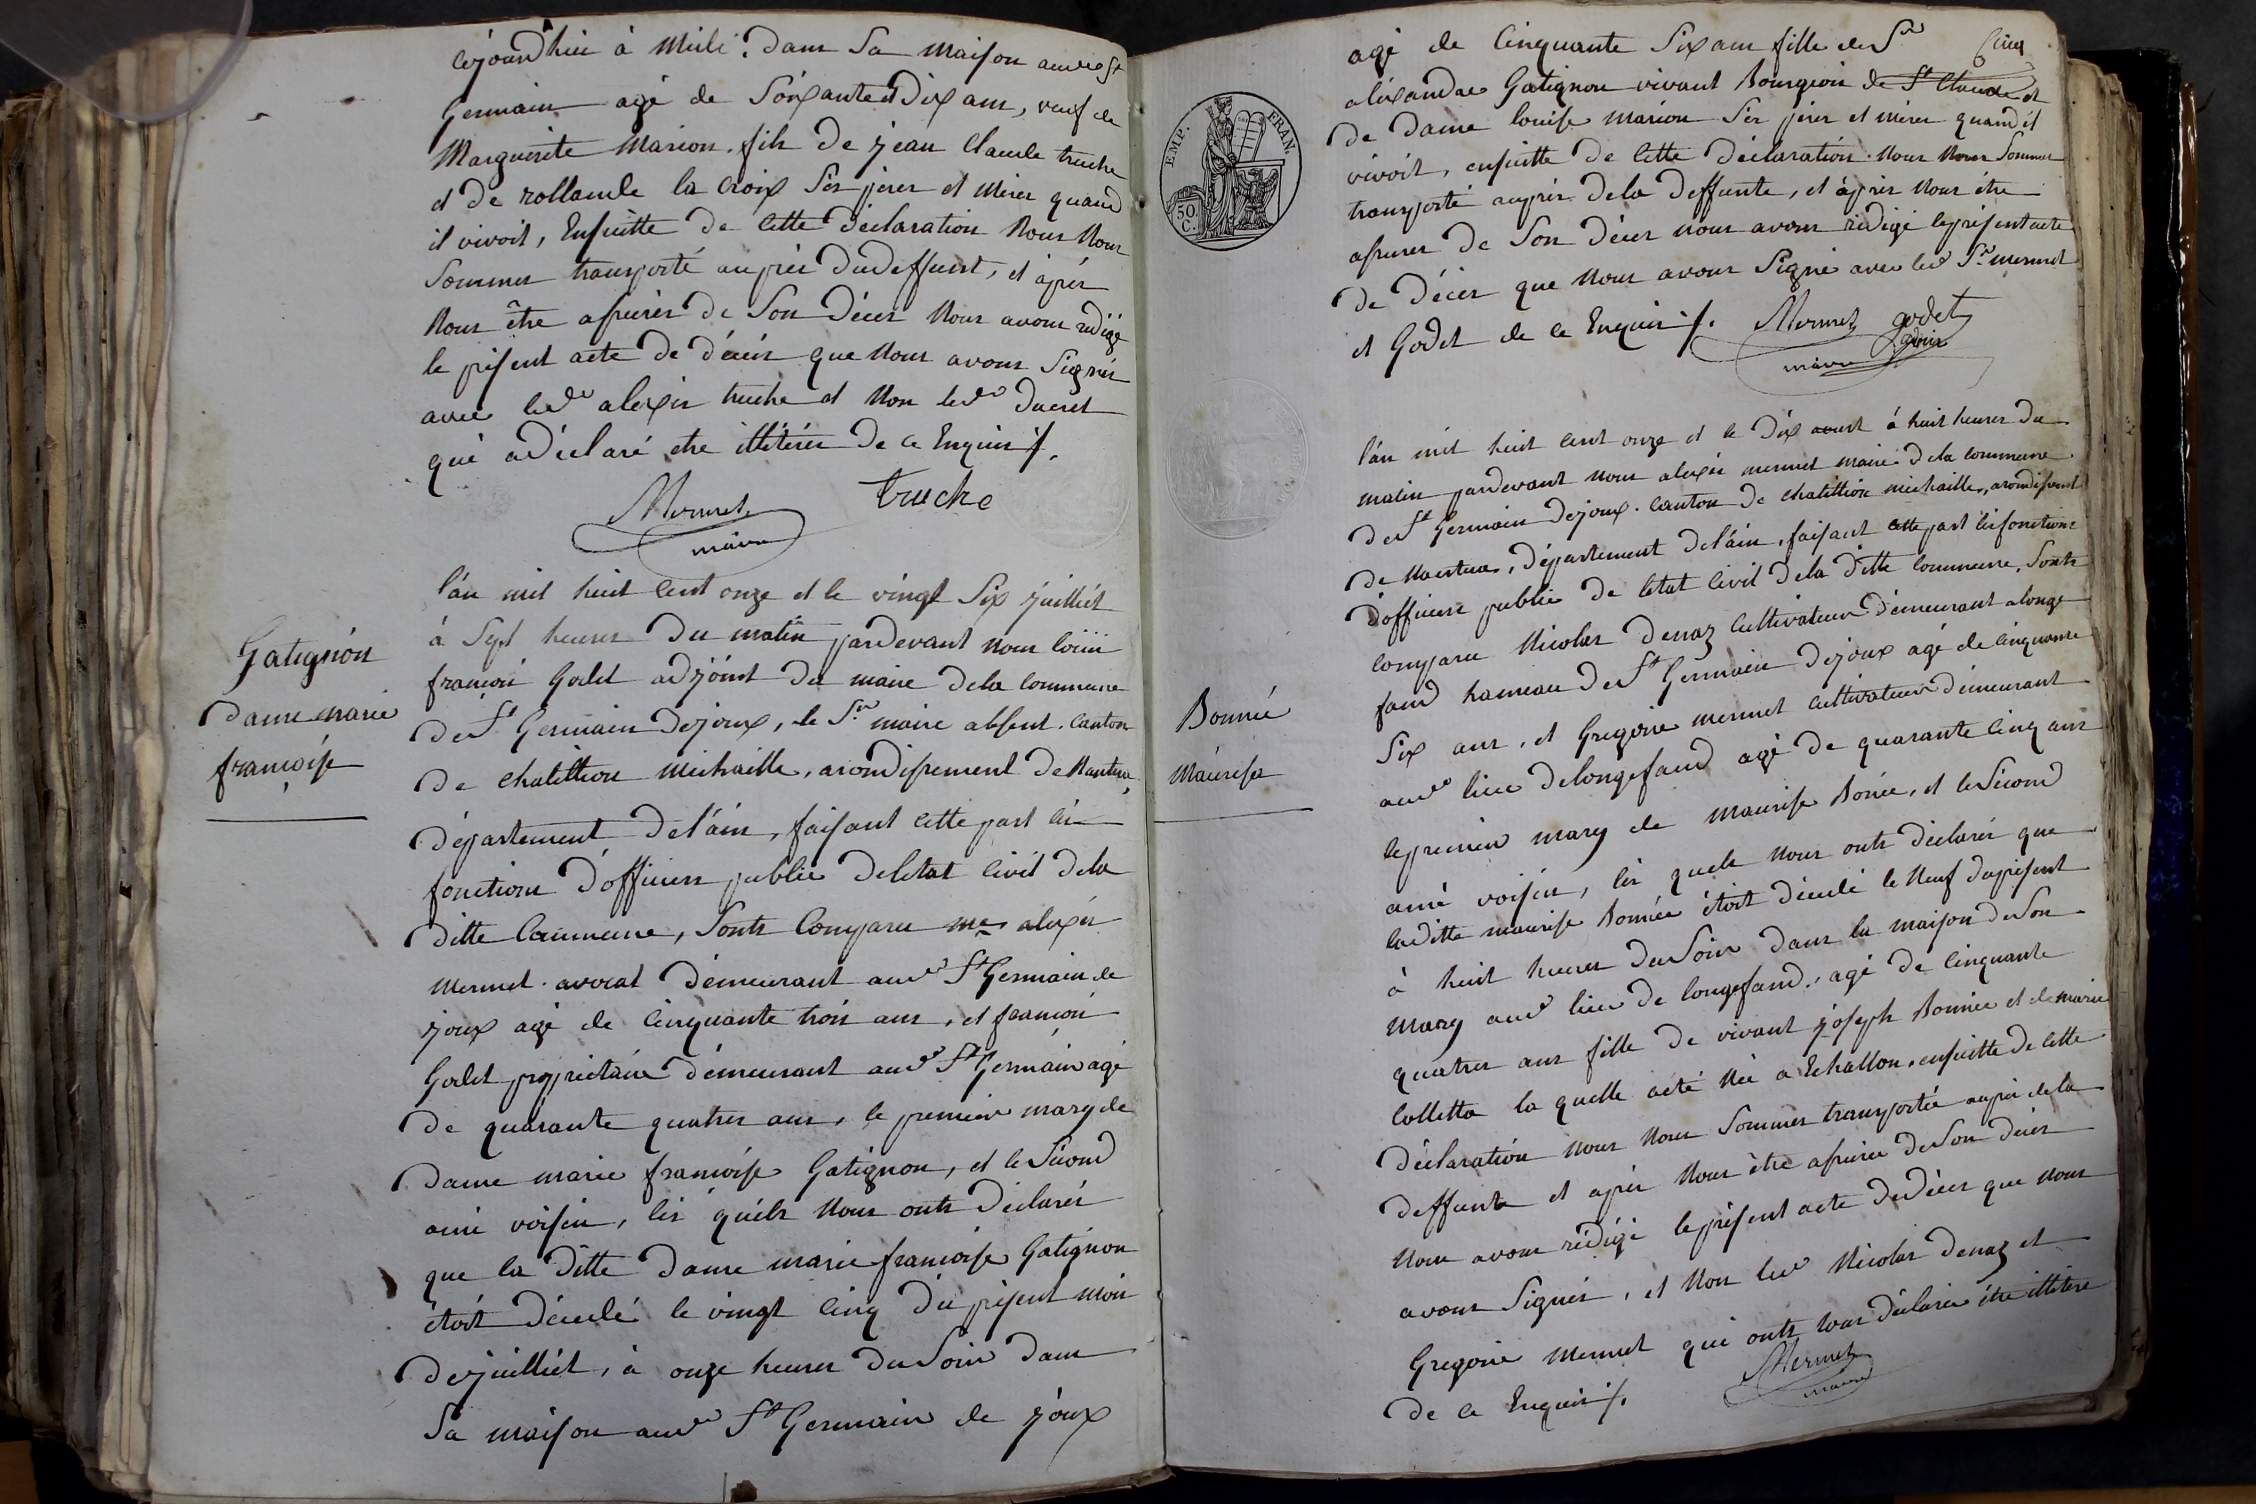 cejourd'huÿ à Midi. dans Sa maison audit St
Germain agé de Soixante et Dix ans, veuf de
Marguerite Marion. fils de jean Claude truche
et de rollande la croix Ses peres et Meres quand
il vivoit, Ensuitte de cette déclaration Nous Nous
Sommes transporté auprès dudeffunt, et après
Nous être assurés de Son Déces Nous avons redigé
le présent acte de décés que Nous avons Signés
avec ledt alexis truche et Non ledt Ducret
qui a déclaré etre illitérés De ce Enquis ./.
Mermet truche
maire
Gatignon
dame marie
francoise
l'an mil huit cent onze et le vingt Six juilliét
à Sept heures du matin pardevant nous loüis
françois Godet adjóint du maire dela commune
de St Germain Dejoux, le Sr maire absent. canton
de chatillion Michaille, arondissement de Nantua,
département de l'áin, faisant cette part les
fonctions d'officiers public deletat Civil dela
ditte Commune, Sonts Comparu me alexis
Mermet. avocat démeurant audt St Germain de
joux agé de Cinquante trois ans, et françois
Godet propriétaire démeurant audt St Germain agé
de quarante quatres ans, le premier mary de
dame marie francoise Gatignon, et le Sécond
ami voisin, les quéls Nous onts déclarés
que la ditte Dame marie francoise Gatignon
étoit Décedé le vingt Cinq du présent mois
de juilliét, à onze heures du Soir dans
Sa maison audt St Germain de joux
EMP. FRAN.
50. C.
agé de Cinquante Six ans fille de Sr
aléxandre Gatignon vivant Bourgeois de St Claude et
de dame louise marion Ses peres et meres quand il
vivoit, ensuitte de cette déclaration. Nous Nous Sommes
transporté auprés dela deffunte, et après Nous être
assurés de Son Déces nous avons rédigé le présent acte
de Déces que Nous avons Signé avec les Srs mermet
et Godet de ce Enquis ./. Mermet godet
maire adjoint
Bonnée
Maurise
l'an mil huit cent onze et le Dix aoust à huit heures du
matin pardevant nous alexis mermet maire dela commune
de St Germain dejoux. canton de chatillion michaille, arondissment
de Nantua, département deláin, faisant cette part les fonctions
d'officiers public de letat Civil dela ditte commune, Sonts
comparu Nicolas Denaz Cultivateur démeurant alonge
fand hameau de St Germain dejoux agé de cinquante
Six ans, et Gregoire mermet cultivateur démeurant
audt lieu delongefand agé de quarante cinq ans
le premier mary de maurise Bonée, et le Sécond
ami voisin, les quels Nous onts déclarés que
laditte maurise Bonnée étoit décedé le Neuf du présent
à huit heures du Soir dans la maison de Son
Mary audt lieu de longefand, agé de Cinquante
quatres ans fille de vivant joseph Bonnée et de marie
Colletta la quelle a été Née a Echallon, ensuitte de cette
déclaration nous Nous Sommes transportés auprès dela
deffunte et après Nous être assurés de Son déces
Nous avons rédigé le présent acte de déces que Nous
avons Signés, et Non les Nicolas denaz et
Gregoire Mermet qui onts tous déclarés être illitere
de ce Enquis ./. Mermet
maire